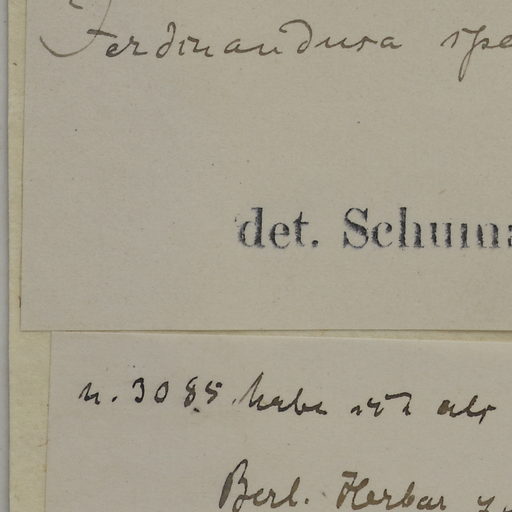 Ferdinandusa spe
det. Schuma
n. 3085 habe ich als
Berl. Herbar